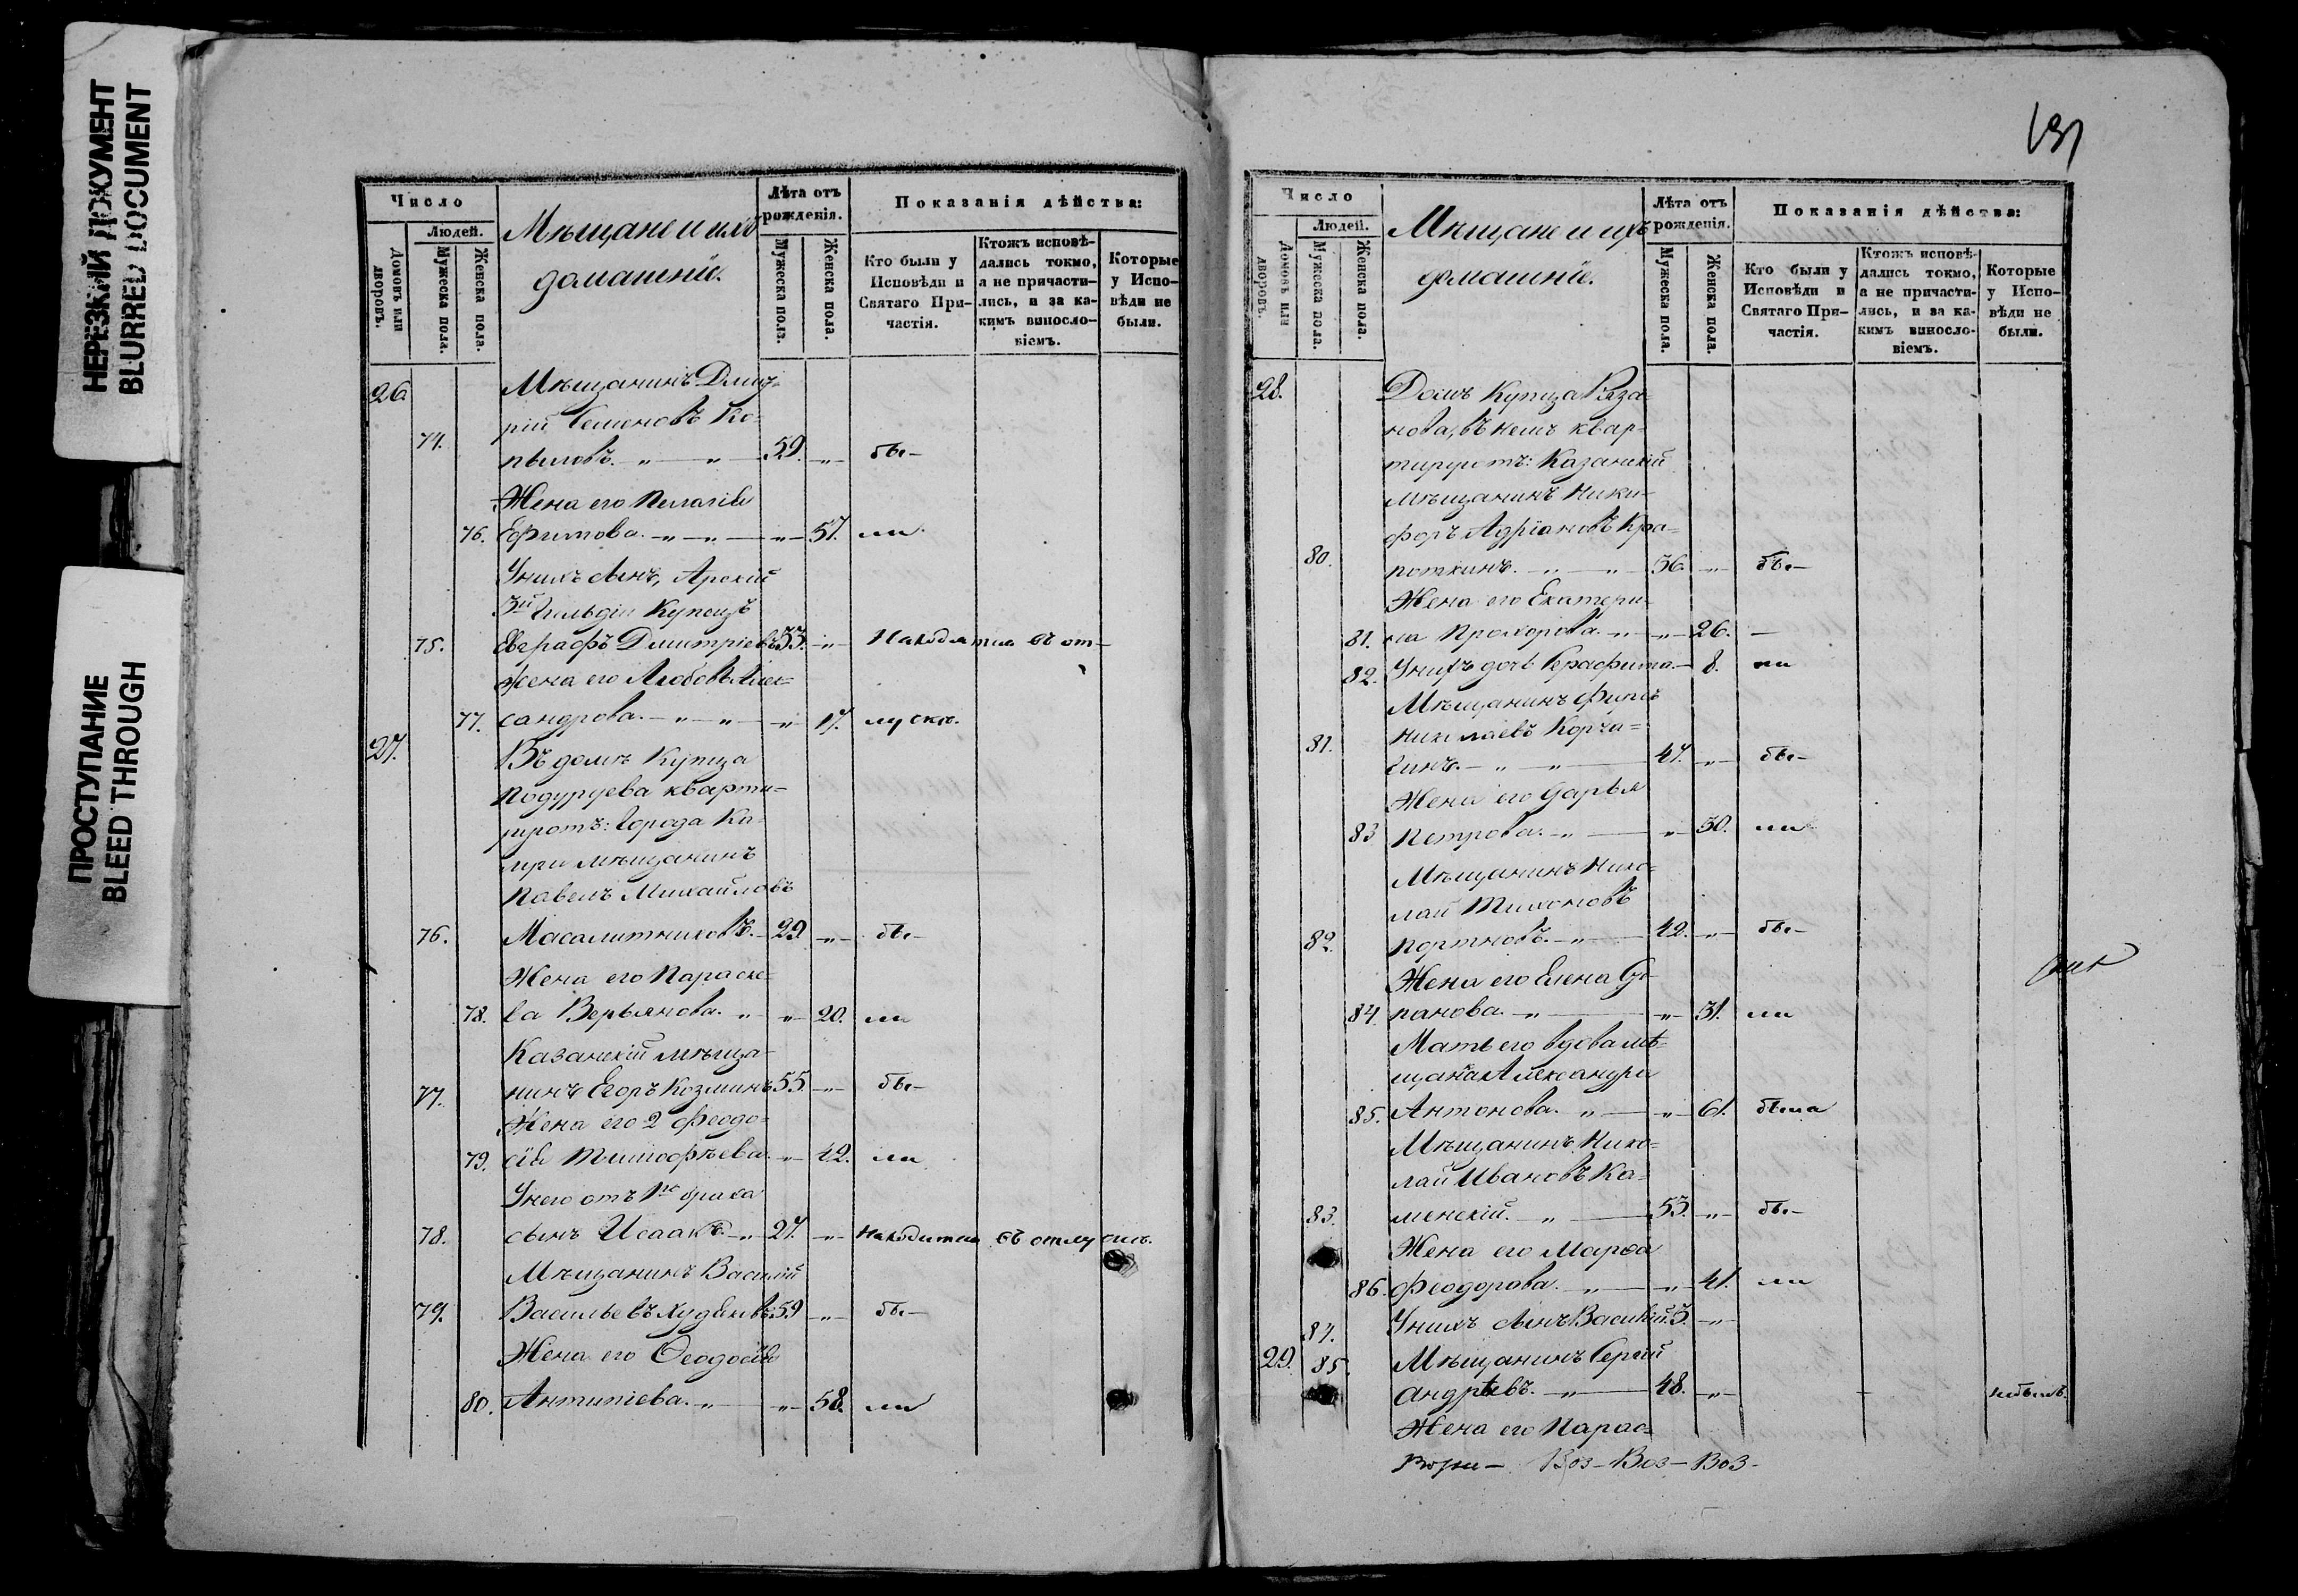 НЕРЕЗКИЙ ДОКУМЕНТ
BLURRED DOCUMENT
ПРОСТУПАНИЕ
BLEED THROUGH
Число
Людей.
Домовъ или дворовъ.
Мужеска пола.
Женска пола.
Мѣщане и ихъ
домашніе.
Лѣта отъ
рожденія.
Мужеска пола.
Женска пола.
Показанія дѣйства:
Кто были у
Исповѣди и
Святаго При-
частія.
Ктожъ исповѣ-
дались токмо,
а не причасти-
лись, и за ка-
кимъ винословіемъ.
Которые
у Испо-
вѣди не
были.
26. Мѣщанинъ Дмит-
рій Семеновъ Ко-
74. пыловъ. 59. бы-
Жена его Пелагія
76. Ефимова. 57. ли
У нихъ сынъ, Арскій
3й гильдіи Купецъ
75. Евграфъ Дмитріевъ 33. Находятся въ от-
Жена его Любовь Алек-
77. сандрова. 17. лускѣ.
27. Въ домѣ Купца
Подуруева кварти-
руютъ: города Ка-
мѣщанинъ
Павелъ Михайловъ
76. Масалитиновъ. 29. бы-
Жена его Параске-
78. ва Верьянова. 20. ли
Казанскій мѣща-
77. нинъ Егоръ Козминъ 55. бы-
Жена его 2 Феодо-
79. сія Тимофѣева. 42. ли
У него отъ 1го брака
78. сынъ Исаакъ. 27. Находится въ отлускѣ.
Мѣщанинъ Василій
79. Васильевъ Худяковъ 59 бы-
Жена его Ѳеодосія
80. Антипіева. 58. ли
131
Число
Людей.
Домовъ или дворовъ.
Мужеска пола.
Женска пола.
Мѣщане и ихъ
домашніе.
Лѣта отъ
рожденія.
Мужеска пола.
Женска пола.
Показанія дѣйства:
Кто были у
Исповѣди и
Святаго При-
частія.
Ктожъ исповѣ-
дались токмо,
а не причасти-
лись, и за ка-
кимъ винословіемъ.
Которые
у Испо-
вѣди не
были.
28. Домъ Купца Ряза-
нова, въ немъ квар-
тируютъ: Казанскій
мѣщанинъ Ники-
форъ Адріановъ Кра-
80. поткинъ. 36. бы-
Жена его Екатери-
81. на Прохорова. 26. —
82. У нихъ дочь Серафима 8. ли
Мѣщанинъ Фирсъ
Николаевъ Корча-
81. гинъ. 47. бы-
Жена его Дарья
83 Петрова. 50. ли
Мѣщанинъ Нико-
лай Тихоновъ
82. Портновъ. 42. бы-
Жена его Елена Сте-
84. панова. 31. ли
Мать его вдова мѣ-
щанка Александра
85. Антонова. 61. была
Мѣщанинъ Нико-
лай Ивановъ Ка-
83. менскій. 53. бы-
Жена его Марѳа
86. Феодорова. 41. ли
84. У нихъ сынъ Василій. 3.
29. 85. Мѣщанинъ Сергій
Андрѣевъ. 48. небылъ.
Жена его Парас-
Воз- Воз- Воз-